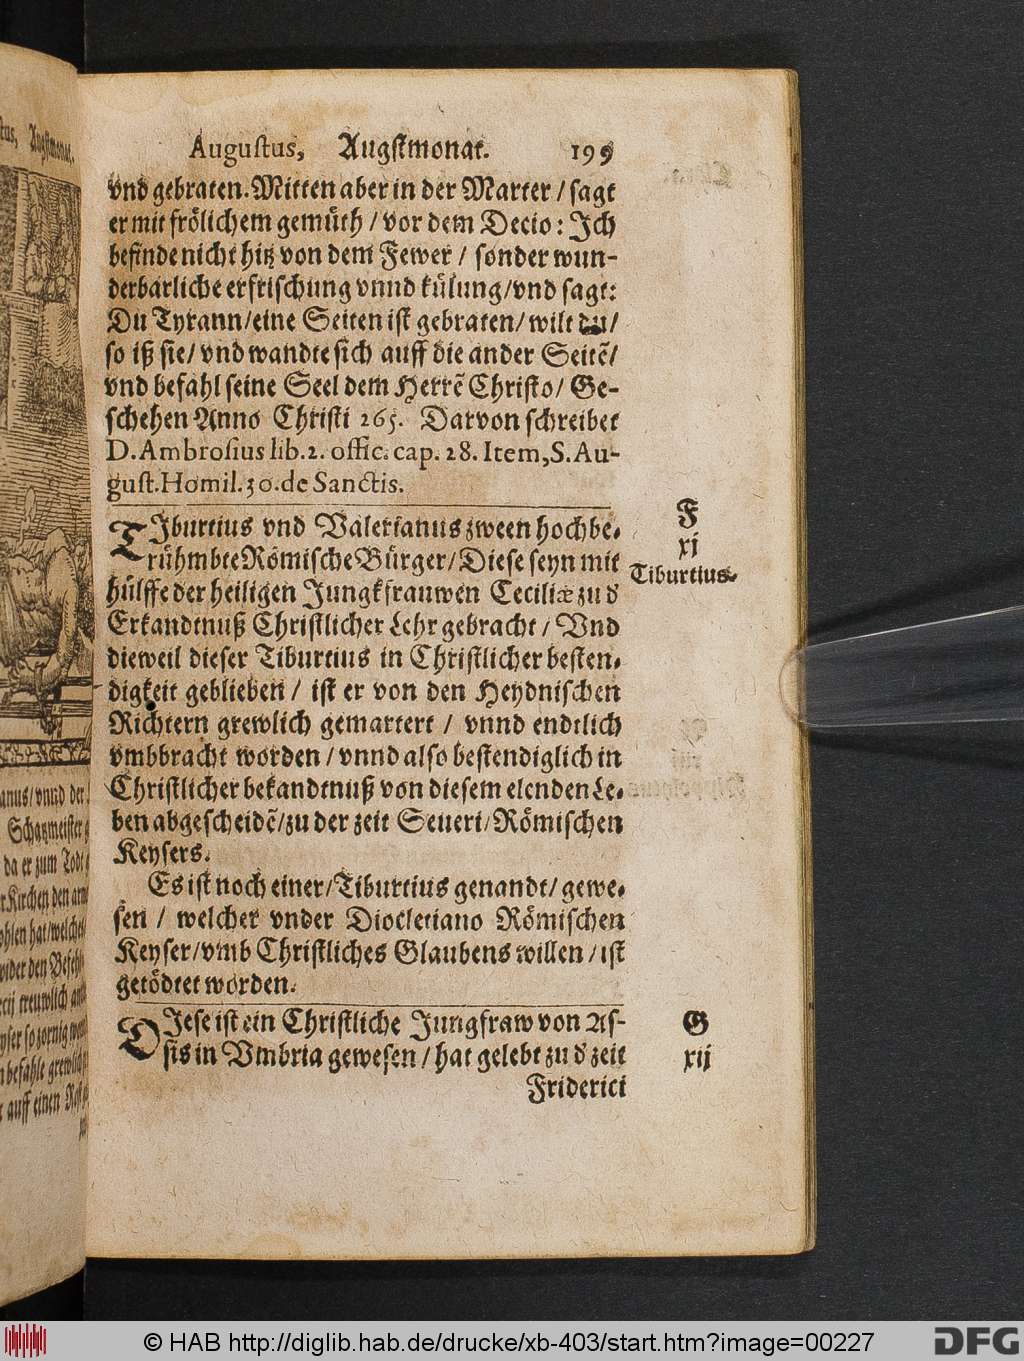 Augustus, Augstmonat. 195
vnd gebraten. Mitten aber in der Marter / sagt
er mit frölichem gemüth / vor dem Decio: Ich
befinde nicht hitz von dem Fewer / sonder wun-
derbarliche erfrischung vnnd külung/vnd sagt:
Du Tyrann/eine Seiten ist gebraten/ wilt du/
so iß sie/ vnd wandte sich auff die ander Seitē/
vnd befahl seine Seel dem Herrē Christo/ Ge-
schehen Anno Christi 265. Darvon schreibet
D. Ambrosius lib. 2. offic. cap. 28. Item, S. Au-
gust. Homil. 30. de Sanctis.
F
xj
Tiburtius.
TIburtius vnd Valerianus zween hochbe-
rühmbte Römische Bürger/ Diese seyn mit
hülffe der heiligen Jungkfrauwen Ceciliæ zu d'
Erkandtnuß Christlicher Lehr gebracht / Vnd
dieweil dieser Tiburtius in Christlicher besten-
digkeit geblieben / ist er von den Heydnischen
Richtern grewlich gemartert / vnnd endtlich
vmbbracht worden / vnnd also bestendiglich in
Christlicher bekandtnuß von diesem elenden Le-
ben abgescheidē/zu der zeit Seueri/Römischen
Keysers.
Es ist noch einer/Tiburtius genandt/ gewe-
sen / welcher vnder Diocletiano Römischen
Keyser/vmb Christliches Glaubens willen / ist
getödtet worden.
G
xij
DIese ist ein Christliche Jungfraw von As-
sis in Vmbria gewesen / hat gelebt zu d' zeit
Friderici
anus/vnnd der
Schatzmeister
da er zum Tode
Kirchen den arm
ohlen hat/welches
wider den Befehl
treuwlich
so zornig
befahle
auff einen Rost
© HAB http://diglib.hab.de/drucke/xb-403/start.htm?image=00227
DFG